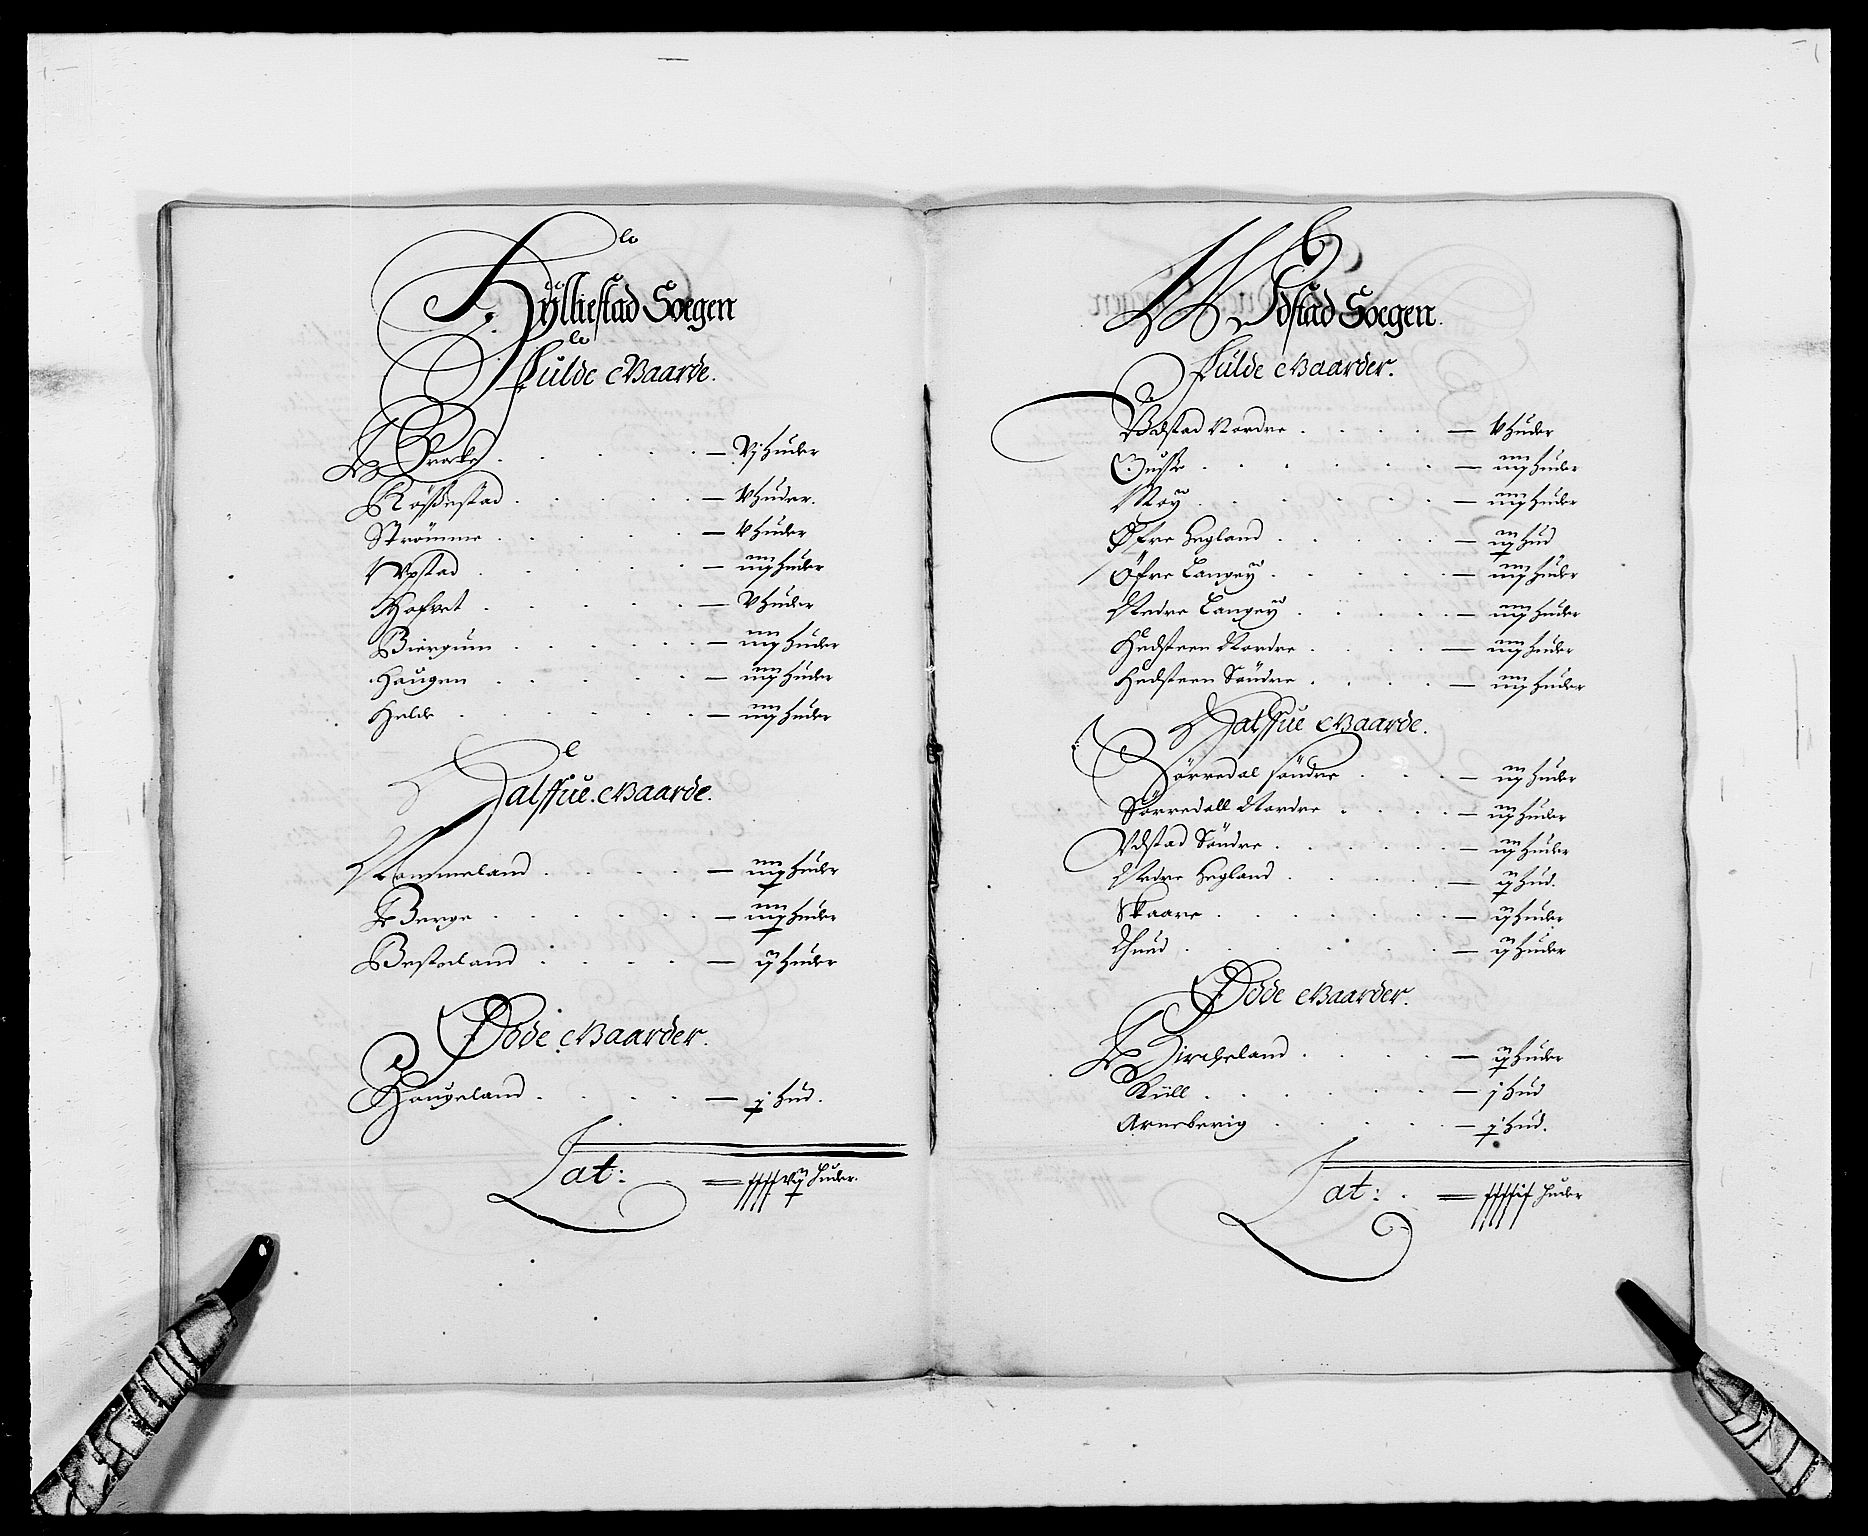 Hylliestad Sogen
Fulde Gaarde.
Brocke . . . . . — Vj huder
Rössestad . . . . — V huder.
Strömme . . . . . — V huder
Upstad . . . . . — iiij huder
Hofvet . . . . . — V huder
Biergum . . . . . — iiij huder
Haugen . . . . . — iiij huder
Helde . . . . . — iiij huder
Halffue Gaarde.
Rommeland . . . . — iiij huder
Berge . . . . . — iiij huder
. . . . — ij huder
Øde Gaarder.
Haugeland . . . . — j hud.
Lat: . = huder.
Wdstad Sogen.
Fulde Gaarder.
Vdstad Nordre . . . . — V huder
. . . . . . — iiij huder
Moÿ . . . . . . — iiij huder
Øfre Hegland . . . . — iij hud
Øfre Langeÿ . . . . . — iiij huder
Nedre Langeÿ . . . . — iiij huder
Hedsteen Nordre . . . . — iiij huder
Hedsteen Söndre . . . . — iiij huder
Halffue Gaarde.
Sörredal söndre . . . — iij huder
Sörredall Nordre . . . . — iij huder
Vdstad Söndre . . . . . — iij huder
Nedre Hegland . . . . . — ij hud.
Skaare . . . . . . — ij huder
. . . . . . — ij huder
Øde Gaarder.
Kircheland . . . . — ij huder
. . . . . . — j hud
Arneberig . . . . — j hud.
Lat: . = huder